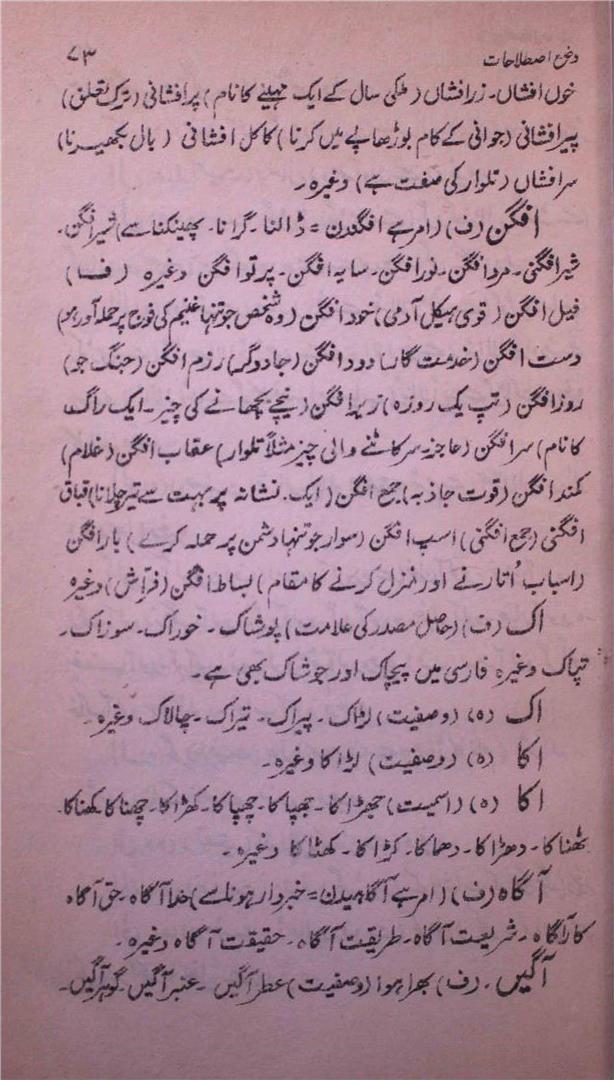 وضع اصطلاحات ۷۳
خوں افشاں۔ زر افشاں (ملکی سال کے ایک مہینے کا نام) پر افشانی (ترک تعلق)
پیر افشانی (جوانی کے کام بوڑھاپے میں کرنا) کاکل افشانی (بال بکھیرنا)
سر افشاں (تلوار کی صفت ہے) وغیرہ۔
افگن (ف) (امر ہے افگندن = ڈالنا۔ گرانا۔ پھینکنا سے) شیر افگن۔
شیر افگنی۔ مرد افگن۔ نور افگن۔ سایہ افگن۔ پرتو افگن وغیرہ (فسا)
فیل افگن (قوی ہیکل آدمی) خود افگن (وہ شخص جو تنہا غنیم کی فوج پر حملہ آور ہو)
دست افگن (خدمت گار) دود افگن (جادوگر) رزم افگن (جنگ جو)
روز افگن (تپ یک روزہ) زیر افگن (نیچے بچھانے کی چیز۔ ایک راگ
کا نام) سر افگن (عاجز۔ سر کاٹنے والی چیز مثلاً تلوار) عقاب افگن (غلام)
کمند افگن (قوت جاذبہ) جمع افگن (ایک نشانہ پر بہت سے تیر چلانا) قباق
افگنی (جمع افگنی) اسپ افگن (سوار جو تنہا دشمن پر حملہ کرے) بار افگن
(اسباب اُتارنے اور منزل کرنے کا مقام) بساط افگن (فرّاش) وغیرہ
اک (ف) (حاصل مصدر کی علامت) پوشاک۔ خوراک۔ سوزاک۔
تپاک وغیرہ فارسی میں پیچاک اور جوشاک بھی ہے۔
اک (ہ) (وصفیت) لڑاک۔ پیراک۔ تیراک۔ چالاک وغیرہ۔
اکا (ہ) (وصفیت) لڑاکا وغیرہ۔
اکا (ہ) (اسمیت) جھڑاکا۔ جھپاکا۔ چھپاکا۔ کھڑاکا۔ چھناکا۔ کھناکا۔
ٹھناکا۔ دھڑاکا۔ دھماکا۔ کڑاکا۔ کھٹاکا وغیرہ۔
آگاہ (ف) (امر ہے آگاہیدن = خبردار ہونا سے) خدا آگاہ۔ حق آگاہ
کار آگاہ۔ شریعت آگاہ۔ طریقت آگاہ۔ حقیقت آگاہ وغیرہ۔
آگیں۔ (ف) بھرا ہوا (وصفیت) عطر آگیں۔ عنبر آگیں۔ گوہر آگیں۔